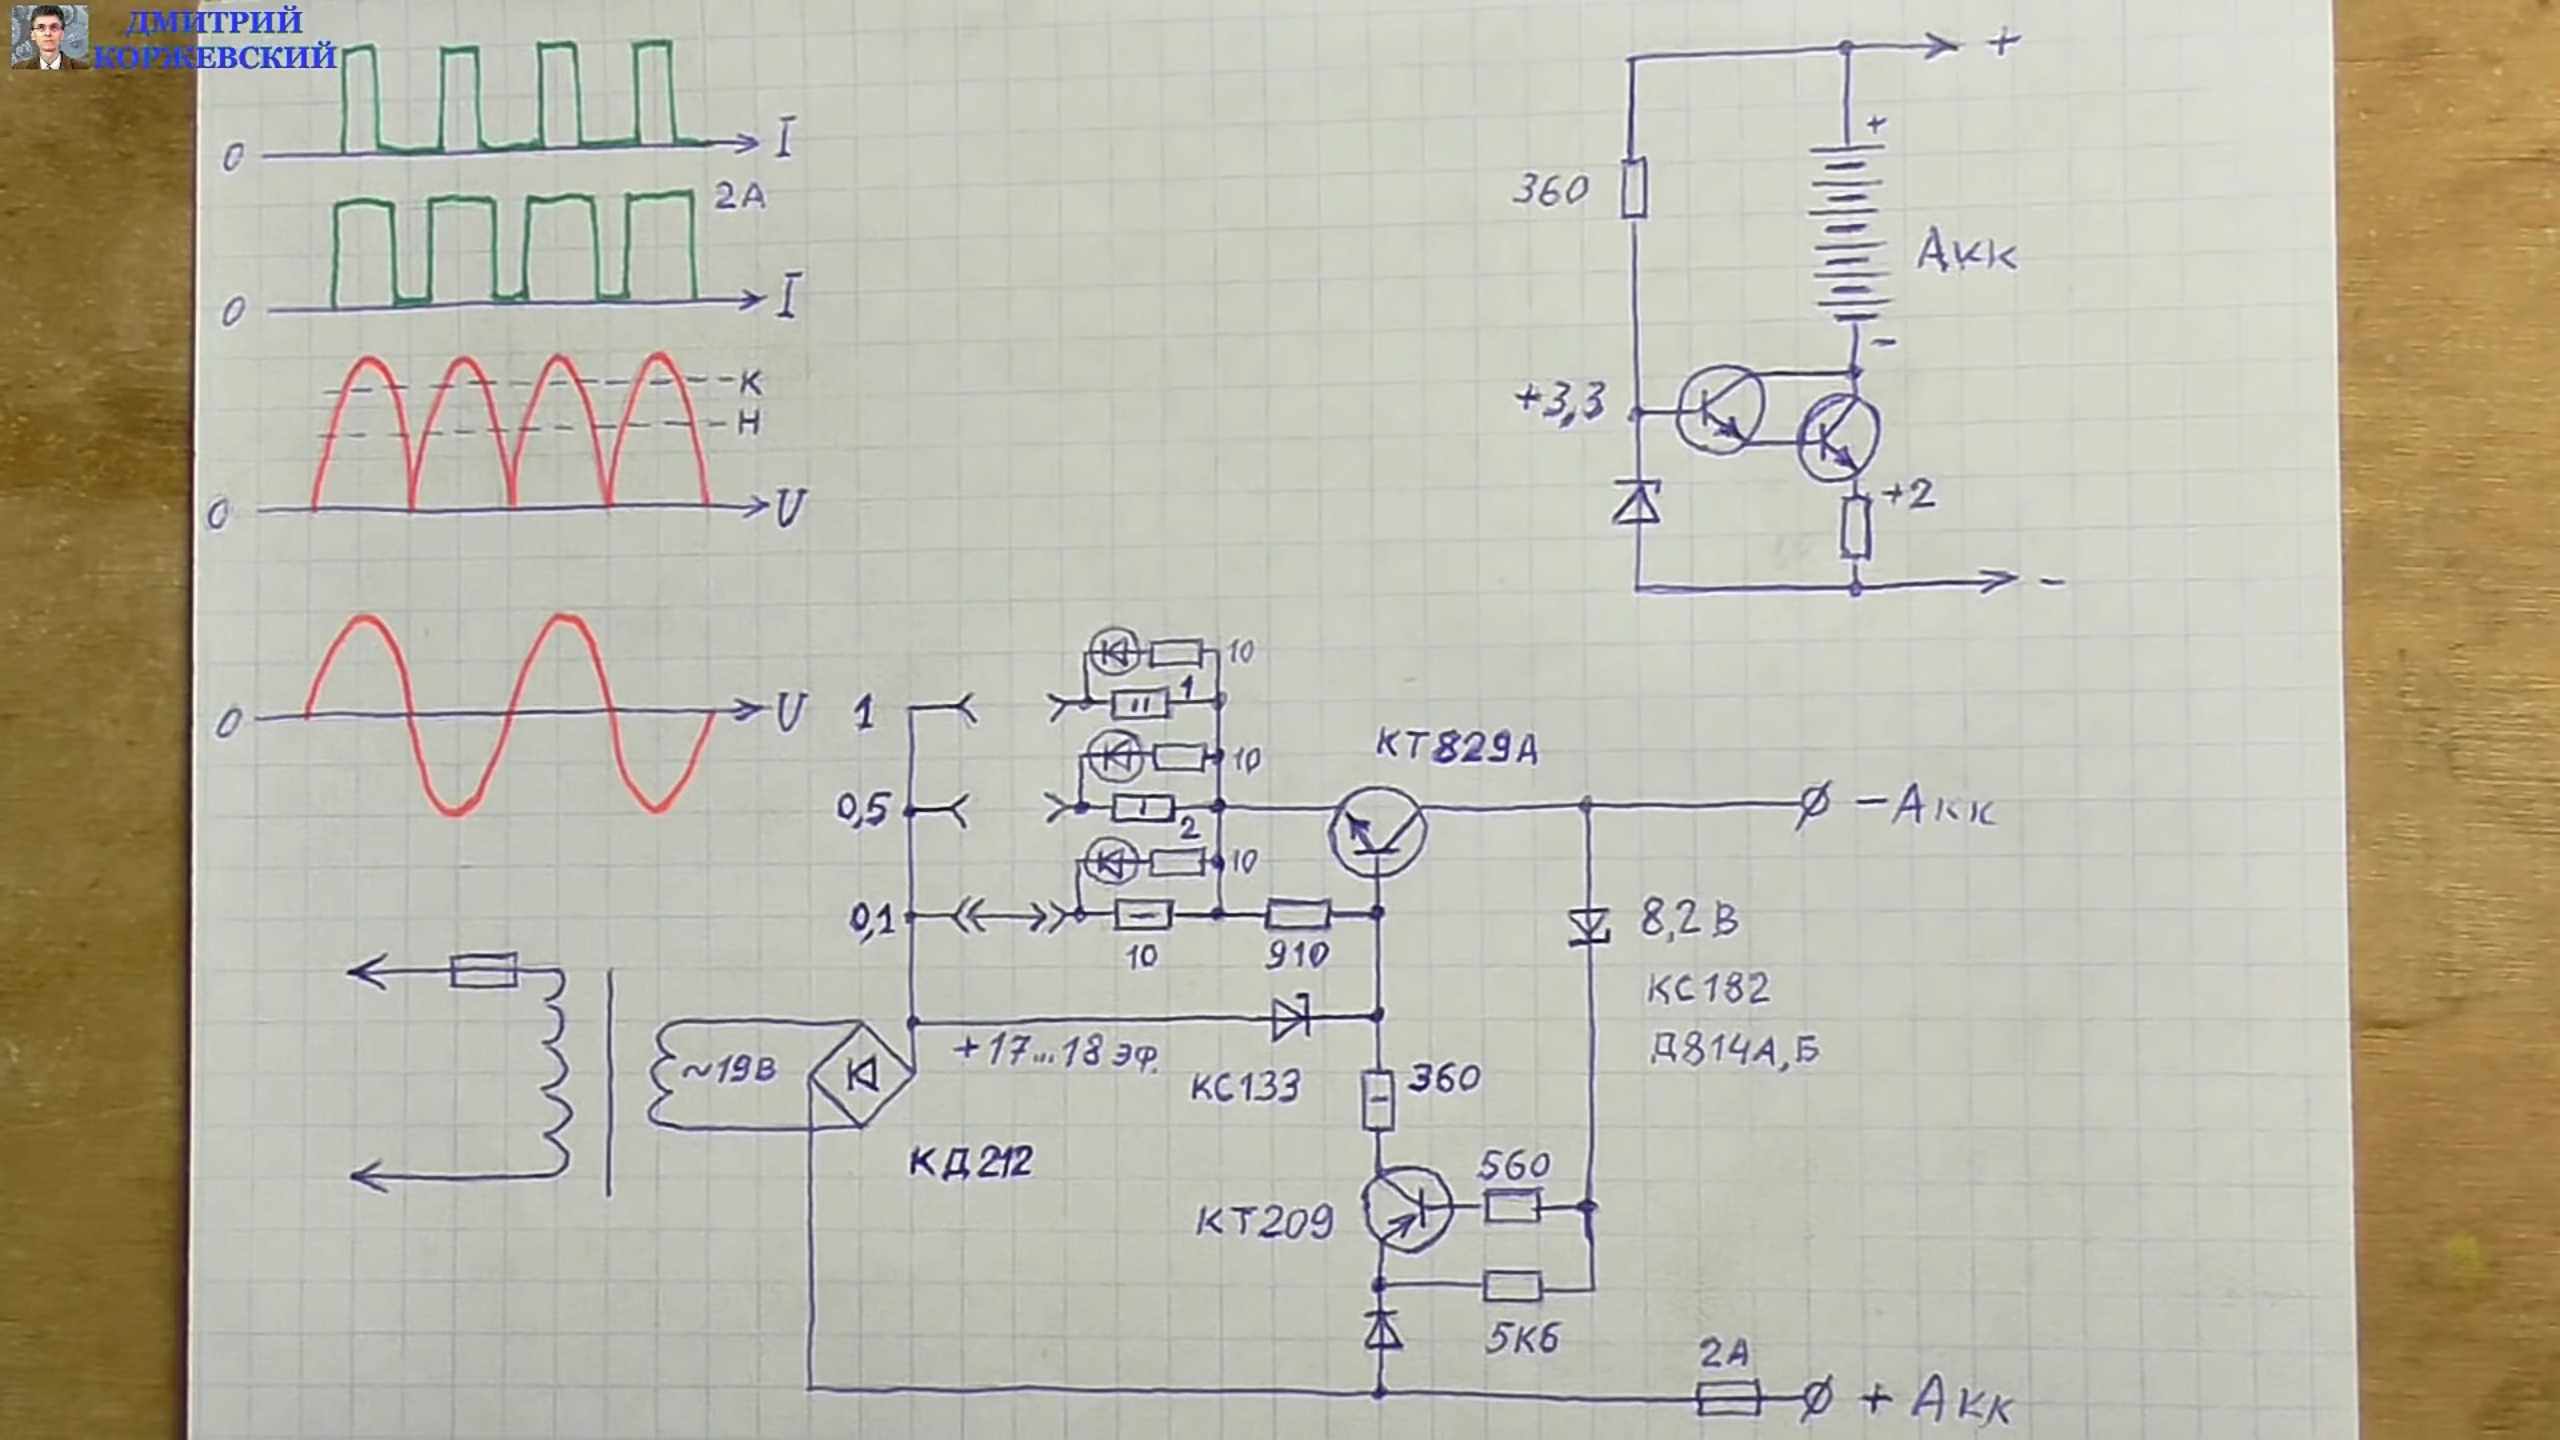 ДМИТРИЙ
КОРЖЕВСКИЙ
0
I
2А
0
I
К
Н
0
U
0
U
+
+
360
Акк
-
+3,3
+2
-
10
1
1
10
0,5
2
10
0,1
10
910
КТ829А
- Акк
8,2 В
КС182
Д814А,Б
~19В
+17...18 эф.
КС133
360
КД212
560
КТ209
5К6
2А
+ Акк